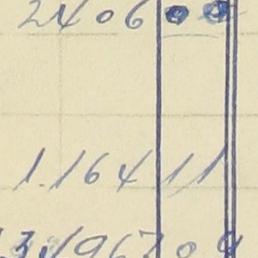 2406 00
1.164 11
3.1967 09